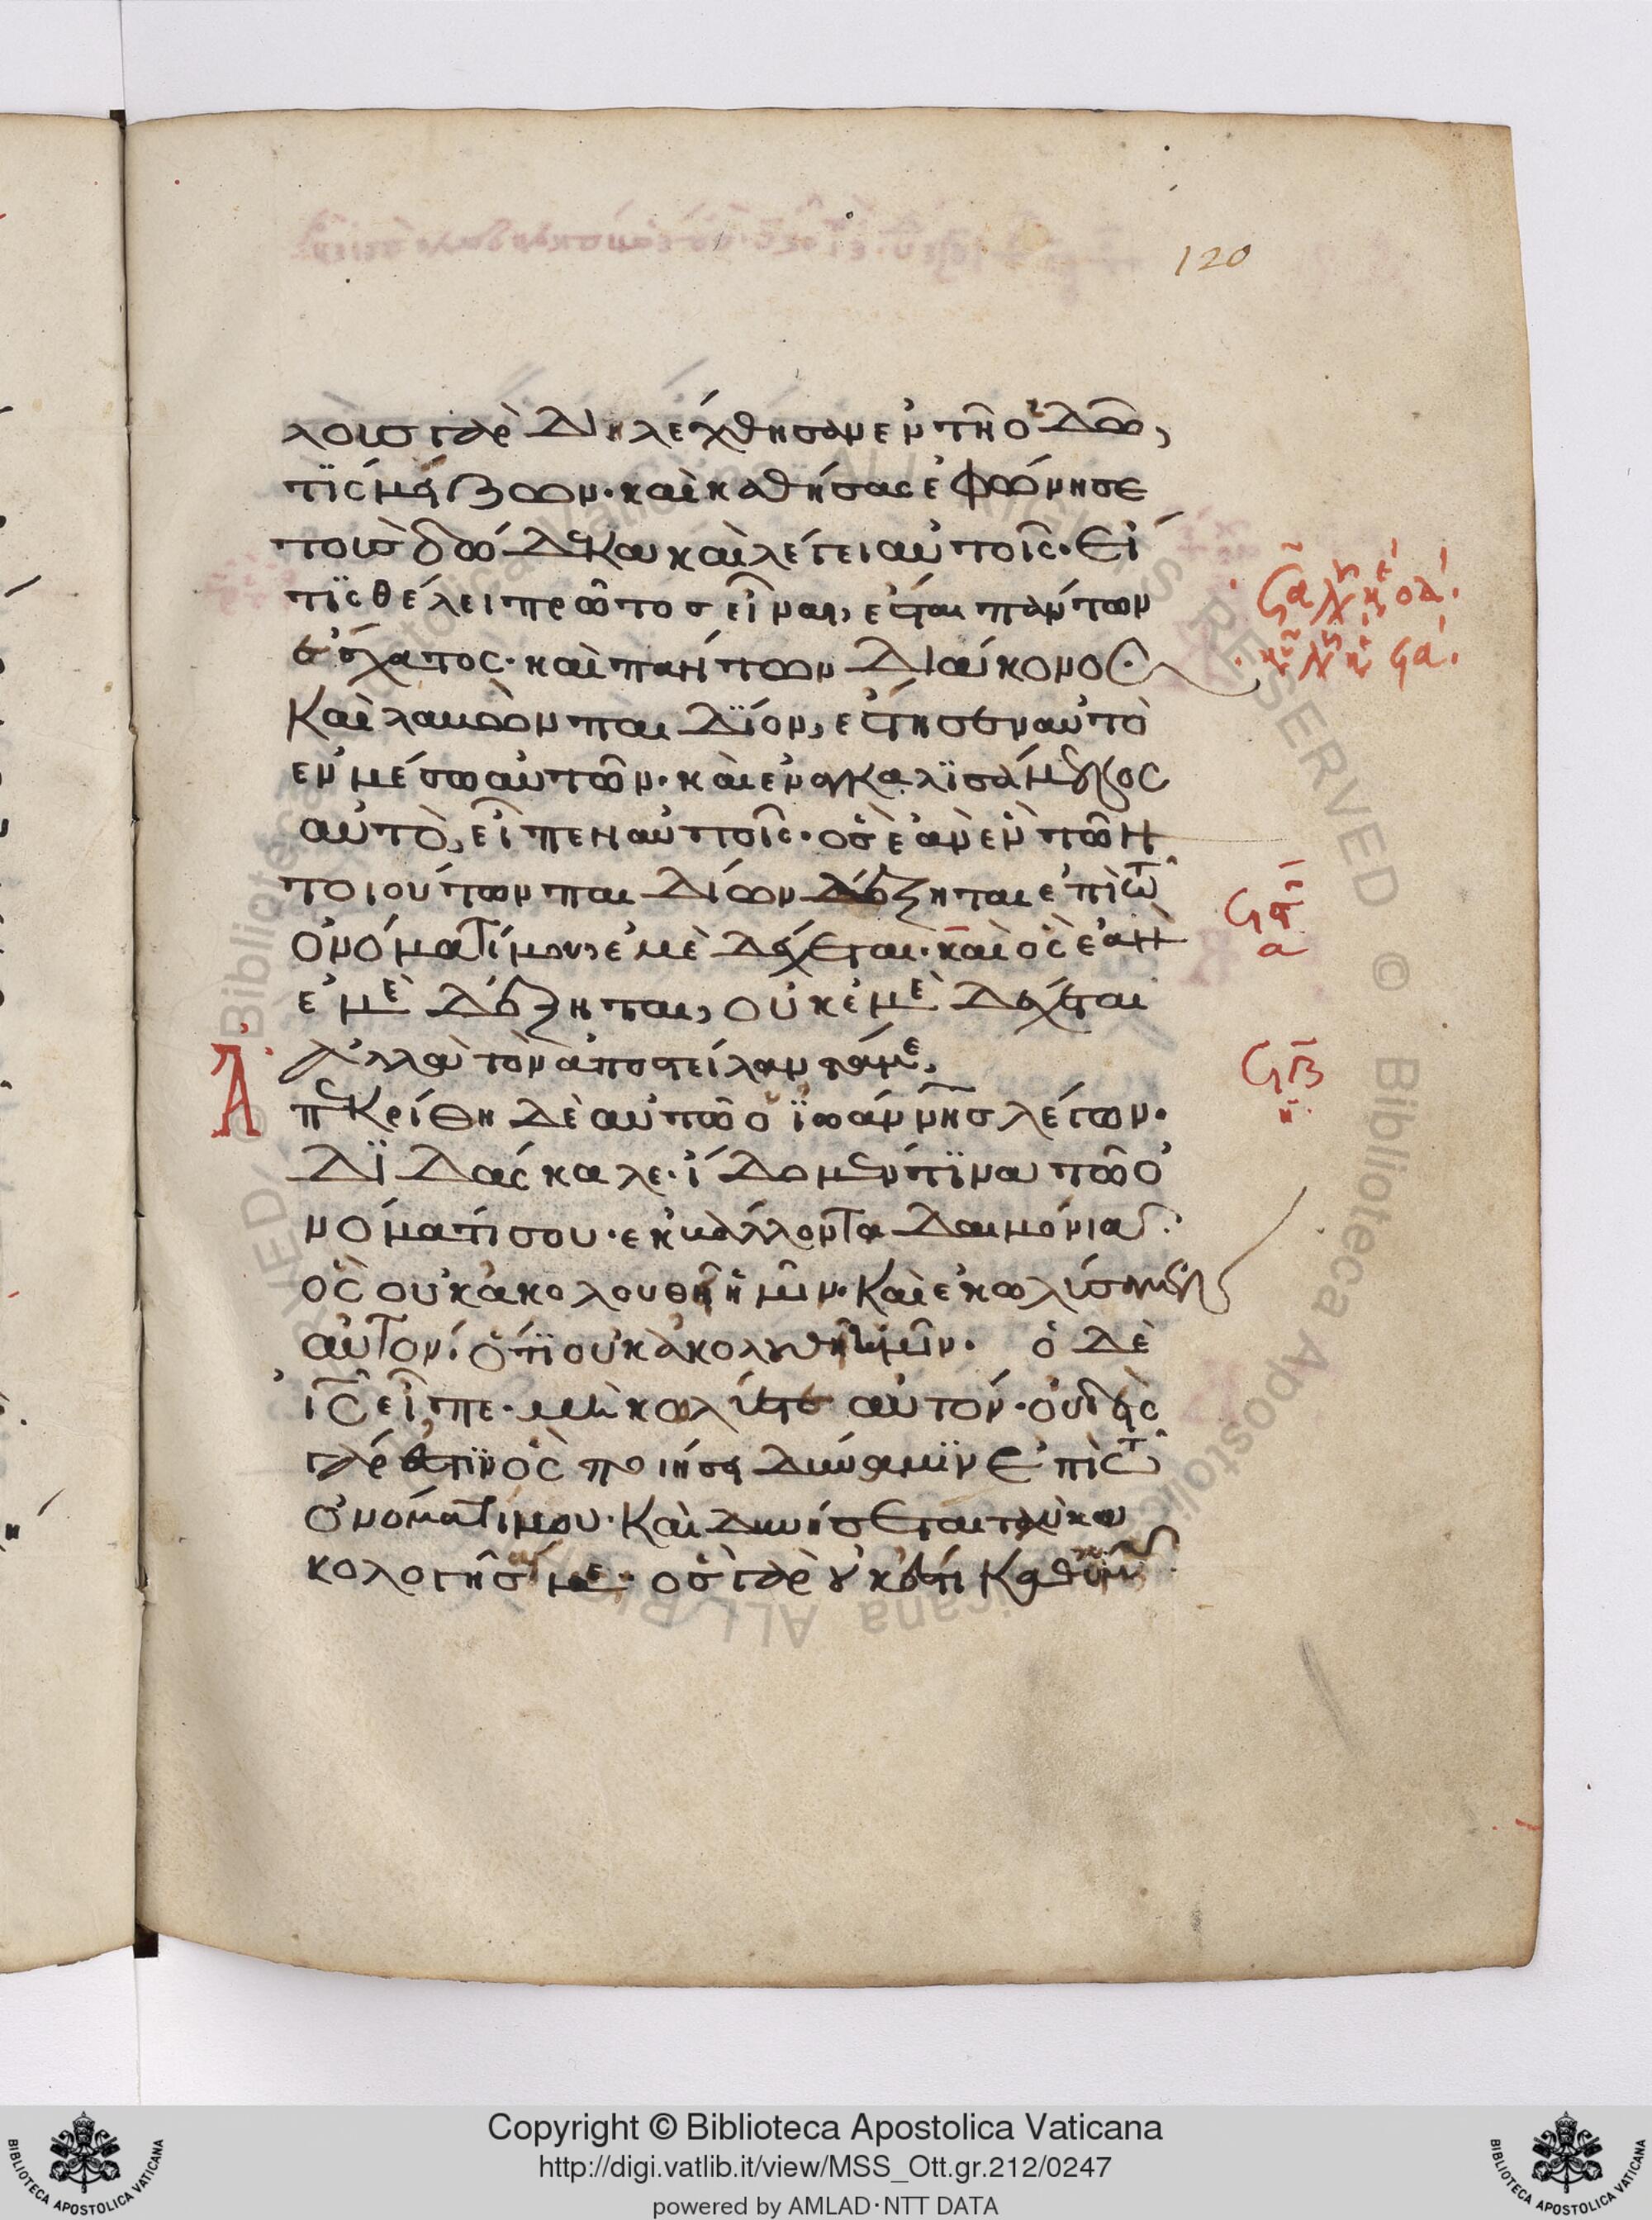 120
λοισ γὰρ διηλέχθησαν ἐν τῆ ὁδῶ,
τίς μείζων. καὶ καθήσας ἐφώνησε
τοὺσ δώδεκα καὶ λέγει αὐτοῖς. Εἴ
τις θέλει πρῶτοσ εἶναι, ἔσται πάντων
ἔσχατος. καὶ πάντων διάκονος.
Καὶ λαβὼν παιδίον, ἔστησεν αὐτὸ
ἐν μέσω αὐτῶν. καὶ ἐναγκαλισάμενος
αὐτὸ, εἶπεν αὐτοῖς. ὃς ἐὰν ἓν τῶν
τοιούτων παιδίων δέξηται ἐπὶ τῶ
ὀνόματί μου, ἐμὲ δέχεται. καὶ ὃς ἐὰν
ἐμὲ δέξηται, οὐκ ἐμὲ δέχεται
ἀλλὰ τὸν ἀποστείλαντά με.
Ἀπεκρίθη δὲ αὐτῶ ὁ ἰωάννησ λέγων.
Διδάσκαλε. ἴδομέν τινα τῶ ὀ
νόματί σου. ἐκβάλλοντα δαιμόνια.
ὃς οὐκ ἀκολουθῆ ἡμῖν. Καὶ ἐκωλύσαμεν
αὐτὸν. ὅτι οὐκ ἀκολουθῆ ἡμῖν. ὁ δὲ
ἰς εἶπε. μὴ κωλύετε αὐτόν. οὐδεὶς
γάρ ἐστιν ὃς ποιήσει δύναμιν ἐπὶ τῶ
ὀνόματί μου. Καὶ δυνήσεται ταχὺ κα
κολογῆσαί με. ὃς γὰρ οὐκ ἔστι καθ' ὑμῶν
Copyright © Biblioteca Apostolica Vaticana
http://digi.vatlib.it/view/MSS_Ott.gr.212/0247
powered by AMLAD·NTT DATA
BIBLIOTECA APOSTOLICA VATICANA
BIBLIOTECA APOSTOLICA VATICANA